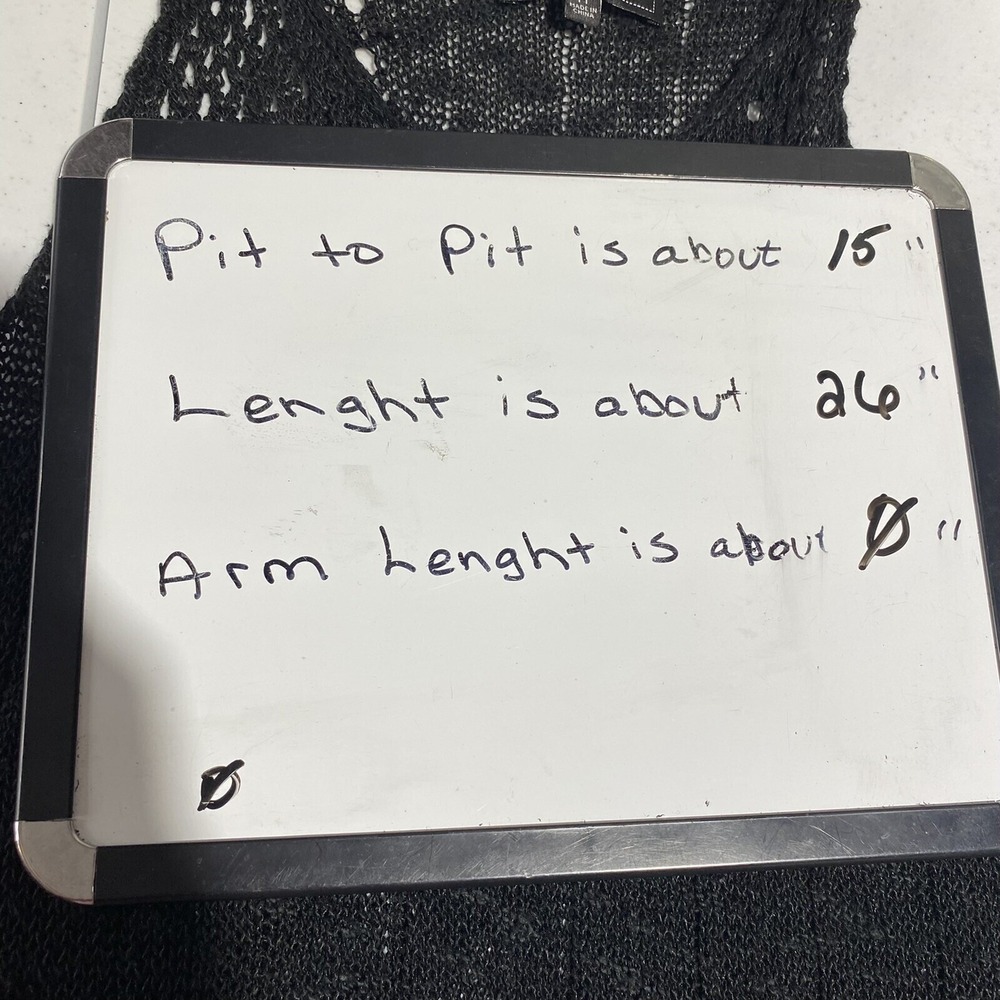 MADE IN
CHINA
Pit to Pit is about 15"
Lenght is about 26"
Arm Lenght is about Ø"
Ø